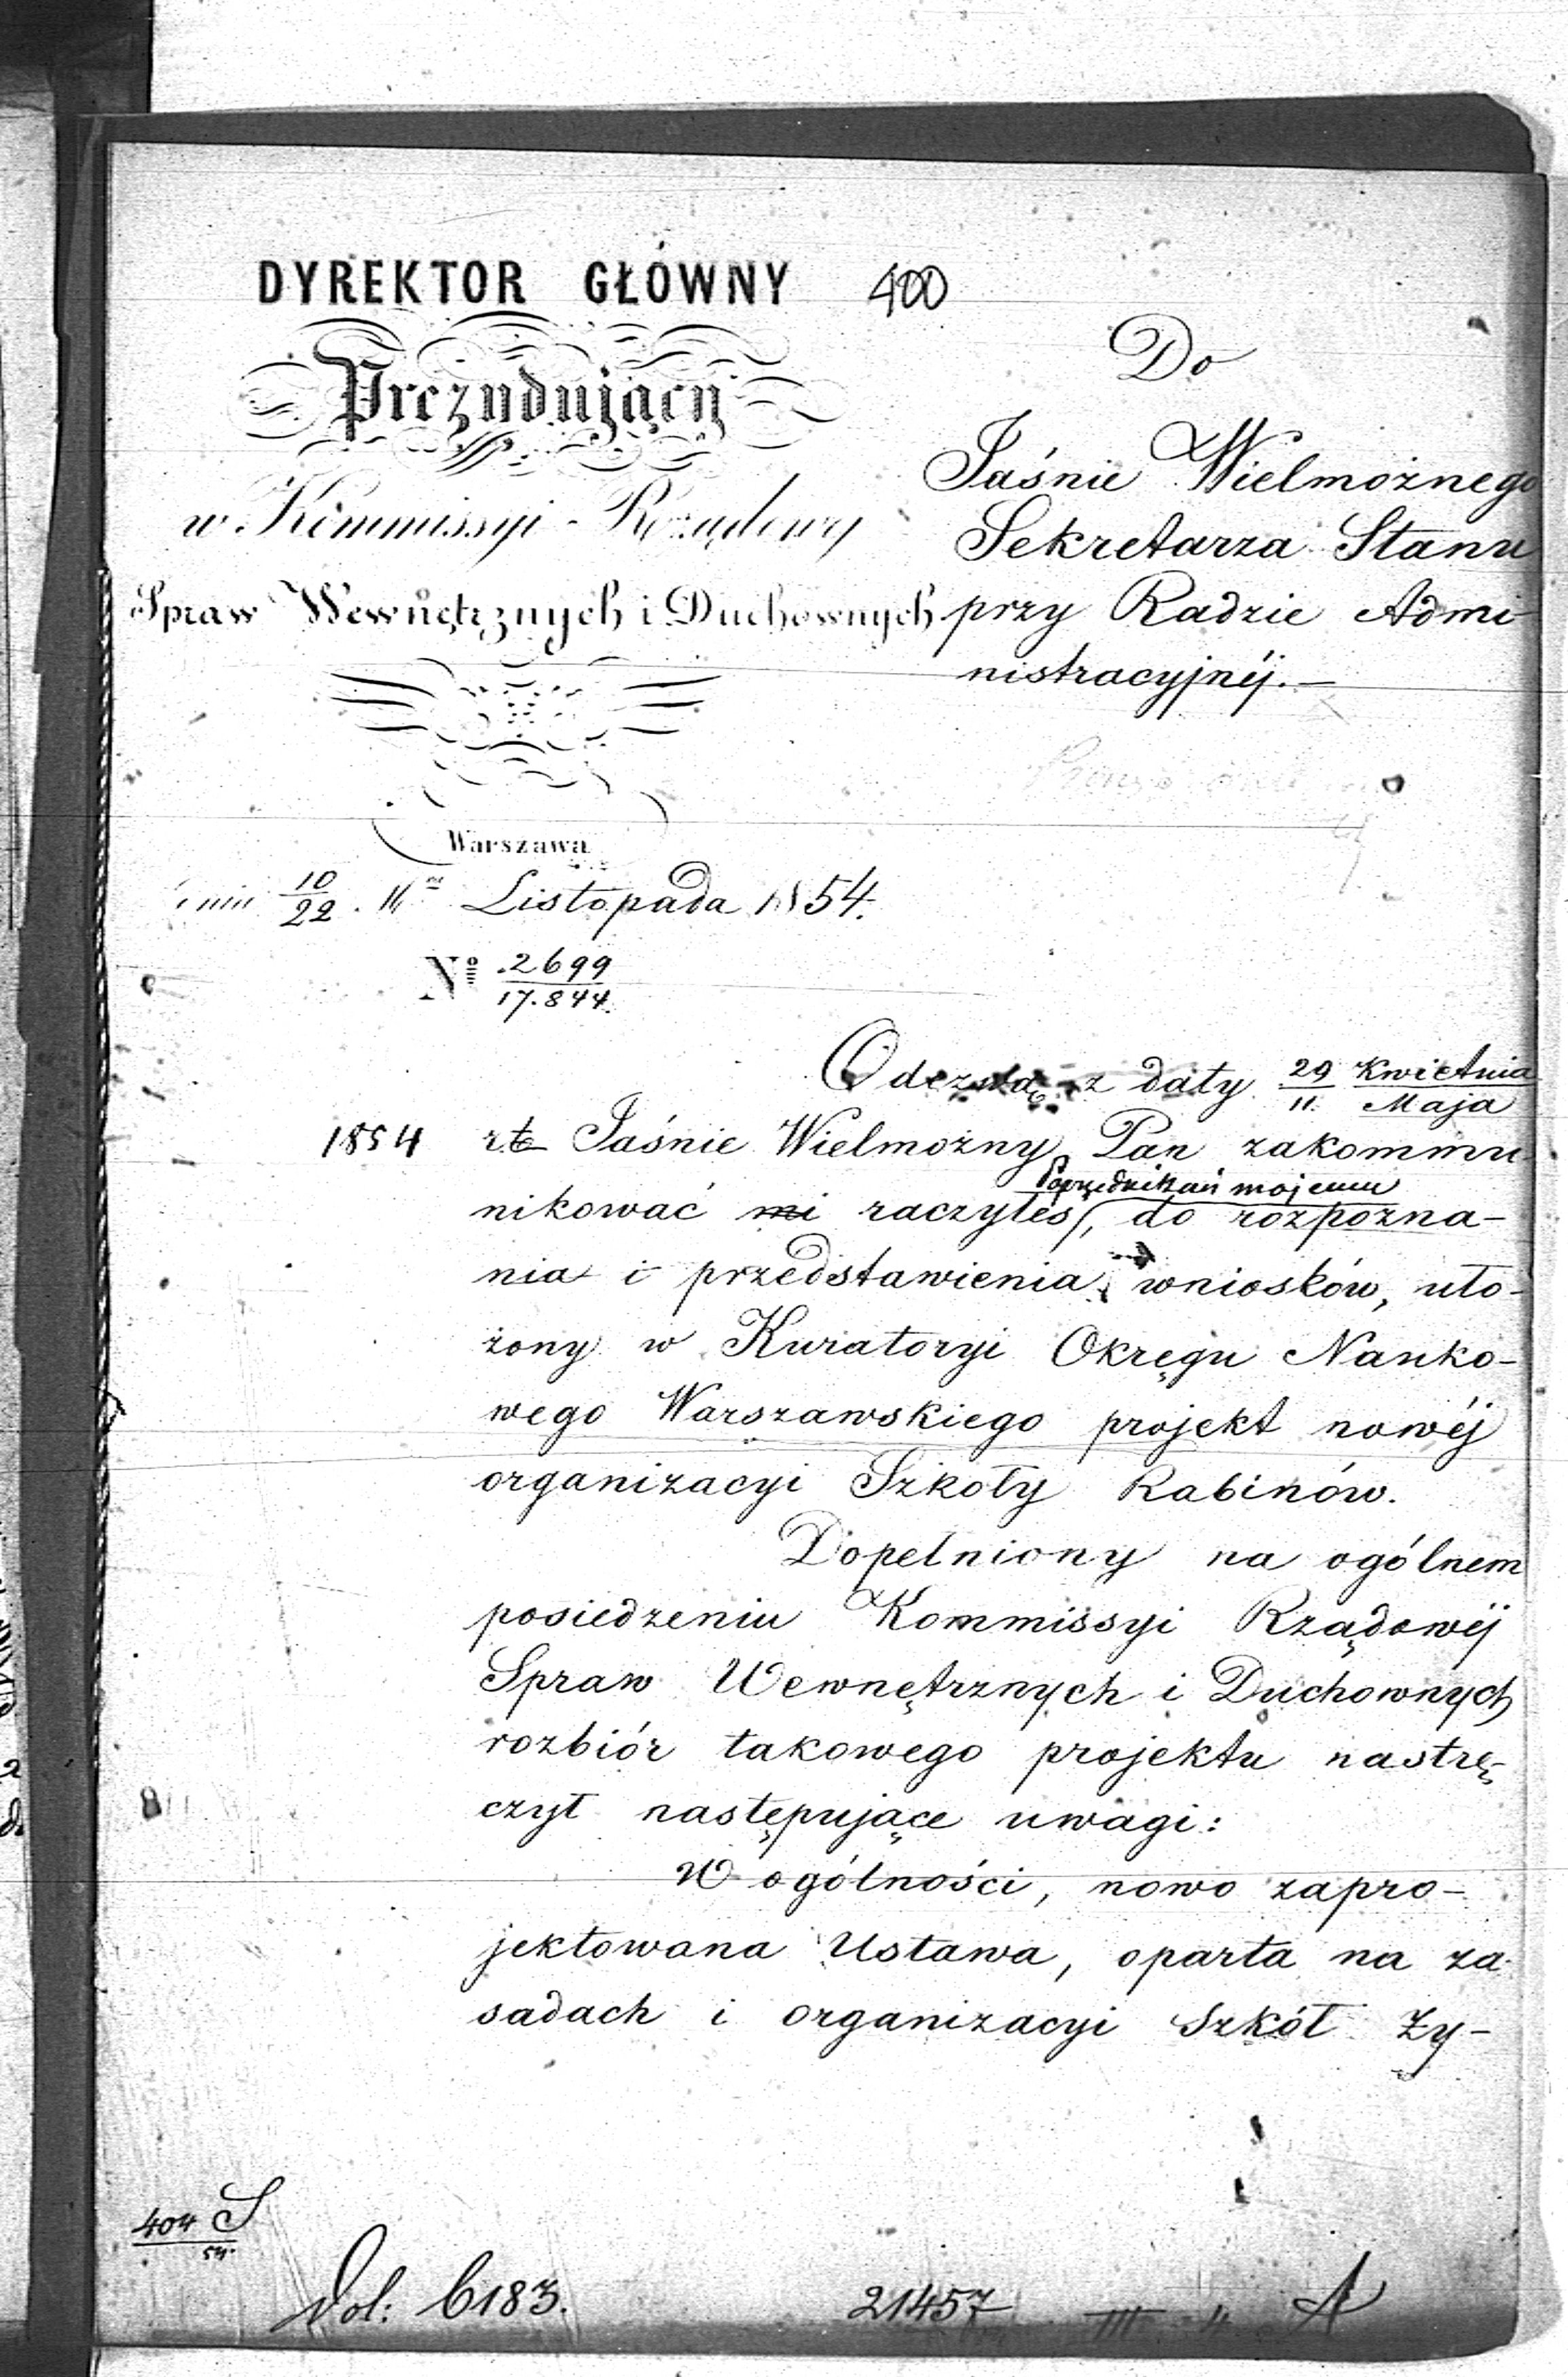 DYREKTOR GŁÓWNY 400
Prezydujący
w Kommissyi Rządowey
Spraw Wewnętrznych i Duchownych
Do
Jaśnie Wielmożnego
Sekretarza Stanu
przy Radzie Admi-
nistracyjnéj.—
Warszawa
dnia 10/22 Listopada 1854.
Nº 2699/17.844.
Odezwą z daty 29 Kwietnia/11. Maja
1854 Jaśnie Wielmożny Pan zakommu-
Poprzednikowi mojemu
nikować mi raczyłeś, do rozpozna-
nia i przedstawienia wniosków, uło-
żony w Kuratoryi Okręgu Nauko-
wego Warszawskiego projekt nowéj
organizacyi Szkoły Rabinów.
Dopełniony na ogólnem
posiedzeniu Kommissyi Rządowéj
Spraw Wewnętrznych i Duchownych
rozbiór takowego projektu nastrę-
czył następujące uwagi:
W ogólności, nowo zapro-
jektowana Ustawa, oparta na za-
sadach i organizacyi Szkół Ży-
404 S
54.
Vol: 6183. 21457 III 4 A